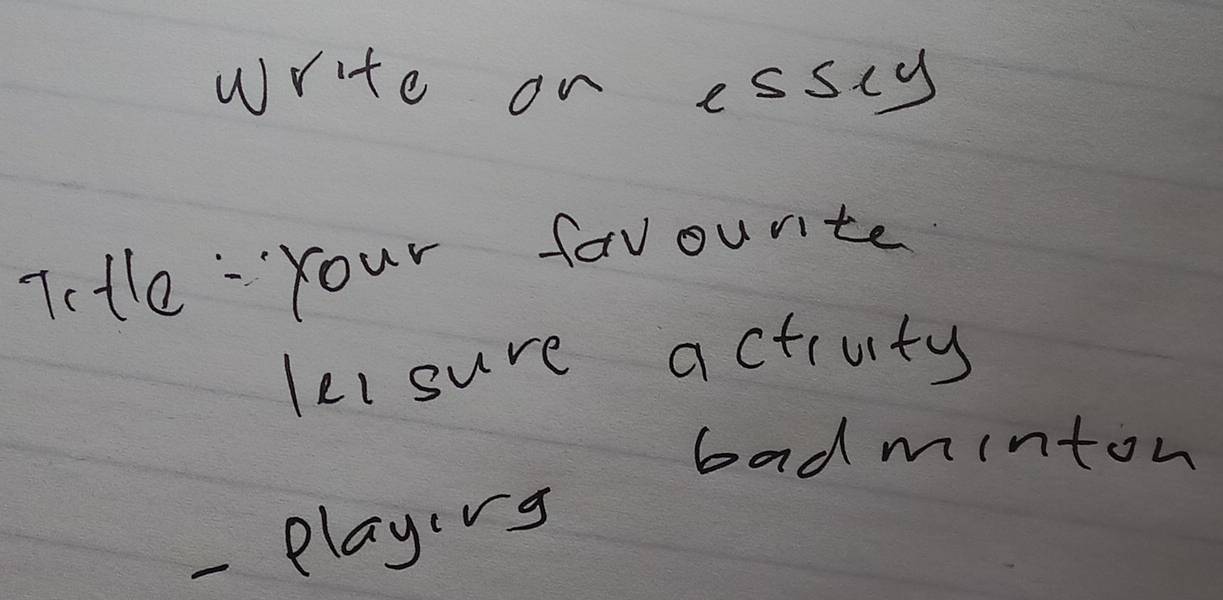 write an essey
Title :- Your favourite
leisure activity
- playing badminton